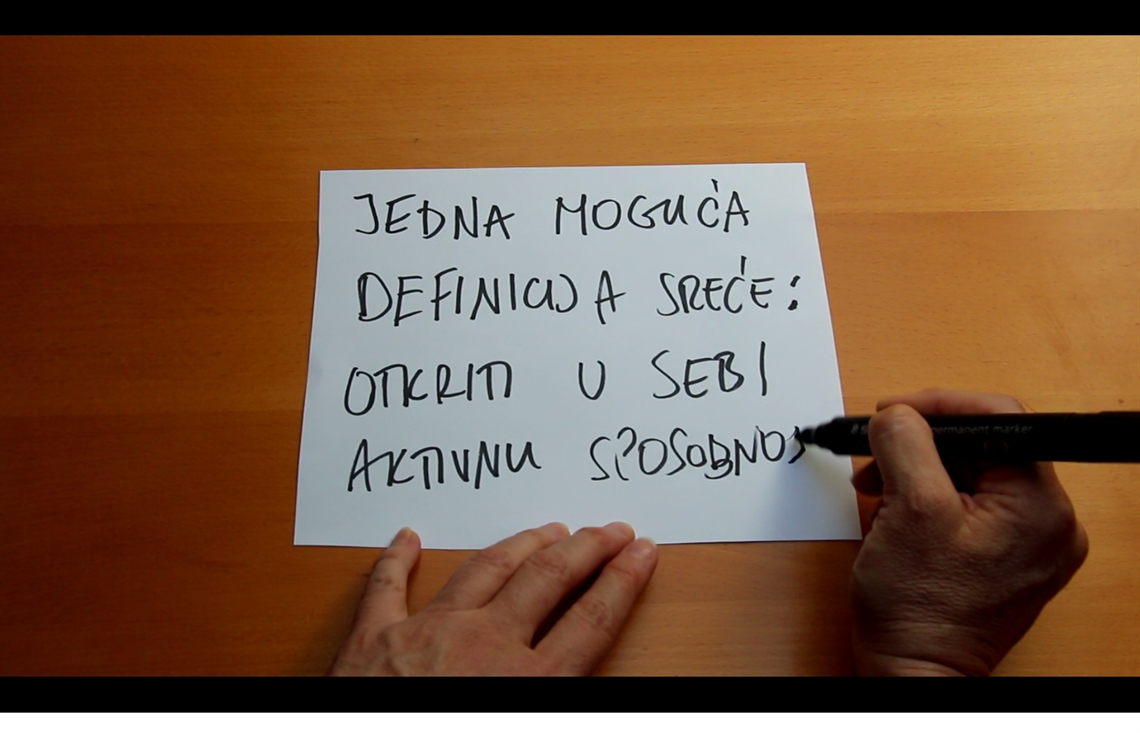 JEDNA MOGUĆA
DEFINICIJA SREĆE:
OTKRITI U SEBI
AKTIVNU SPOSOBNOS
permanent marker